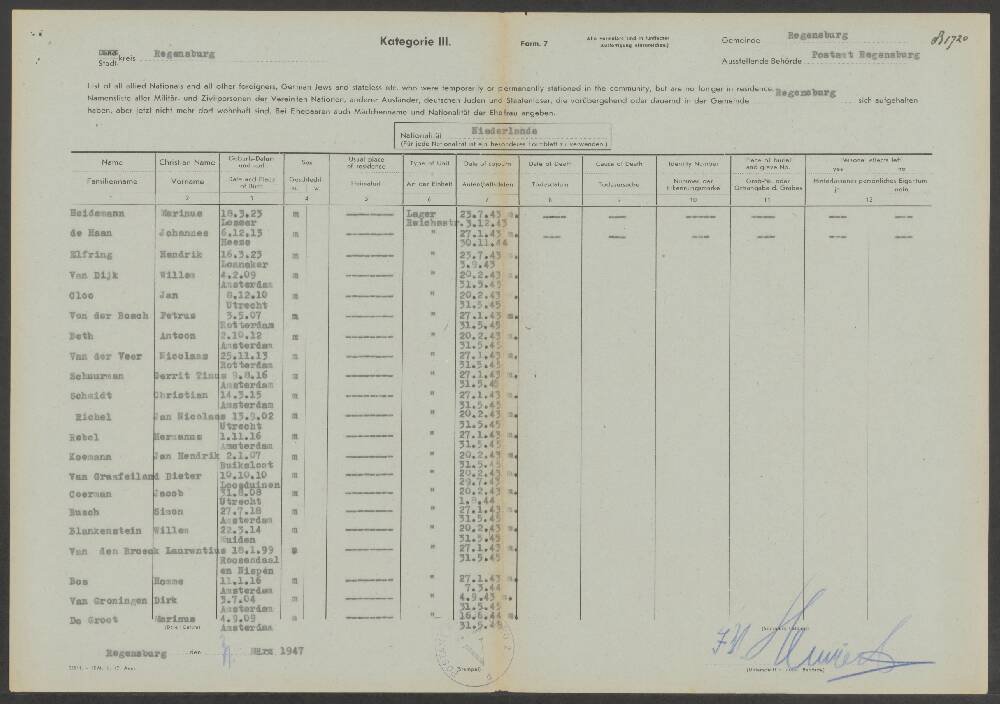 Stadt- kreis Regensburg
Kategorie III.
Form. 7
Gemeinde Regensburg
Ausstellende Behörde Postamt Regensburg
List of all allied Nationals and all other foreigners, German Jews and stateless etc. who were temporarily or permanently stationed in the community, but are no longer in residence.
Namensliste aller Militär- und Zivilpersonen der Vereinten Nationen, anderer Ausländer, deutschen Juden und Staatenloser, die vorübergehend oder dauernd in der Gemeinde Regensburg sich aufgehalten
haben, aber jetzt nicht mehr dort wohnhaft sind. Bei Ehepaaren auch Mädchenname und Nationalität der Ehefrau angeben.
Nationalität Niederlande
(Für jede Nationalität ist ein besonderes Formblatt zu verwenden.)
Name Christian Name Sex Usual place of residence Type of Unit Date of sojourn Date of Death Cause of Death Identity Number Place of burial and grave No. Personal effects left yes no
Familienname Vorname Date and Place of Birth Geschlecht m. w. Heimatort Art der Einheit Aufenthaltsdaten Todesdatum Todesursache Nummer der Erkennungsmarke Hinterlassenes persönliches Eigentum ja nein
1 2 3 4 5 6 7 8 9 10 11 12
Heidemann Marinus 18.3.23 m Lager 23.7.43
Reichsstr. 3.12.43
de Haan Johannes 6.12.13 m " 27.1.43
Heeze 30.11.44
Elfring Hendrik 16.3.23 m " 23.7.43
Lonneker 3.9.43
Van Dijk Willem 4.2.09 m " 20.2.43
Amsterdam 31.3.45
Cloo Jan 8.12.10 m " 20.2.43
Utrecht 31.5.45
Von der Bosch Petrus 3.5.07 m " 27.1.43
Rotterdam 31.5.45
Beth Antoon 2.10.12 m " 20.2.43
Amsterdam 31.5.45
Van der Veer Nicolaas 25.11.13 m " 27.1.43
Rotterdam 31.5.45
Schuurman Gerrit Tinus 9.8.16 m " 27.1.43
Amsterdam 31.5.45
Schmidt Christian 14.3.15 m " 27.1.43
Amsterdam 31.5.45
Richel Jan Nicolaas 13.9.02 m " 20.2.43
Utrecht 31.5.45
Robel Hermanus 1.11.16 m " 27.1.43
Amsterdam 31.5.45
Koemann Jan Hendrik 2.1.07 m " 20.2.43
Buiksloot 31.5.45
Van Graafeiland Dieter 10.10.10 m " 20.2.43
Loosduinen 29.7.43
Coerman Jacob 31.8.08 m " 20.2.43
Utrecht 1.8.44
Busch Simon 27.7.18 m " 27.1.43
Amsterdam 31.5.45
Blankenstein Willem 22.3.14 m " 20.2.43
Muiden 31.5.45
Van den Broeck Laurentius 18.1.99 m " 27.1.43
Roosendaal 31.5.45
en Nispen
Bos Homme 11.1.16 m " 27.1.43
Amsterdam 7.3.44
Van Groningen Dirk 3.7.04 m " 4.9.43
Amsterdam 31.5.45
De Groot Marinus 4.9.09 m " 16.6.44
Amsterdam 31.5.45
Regensburg den März 1947
(Stempel)